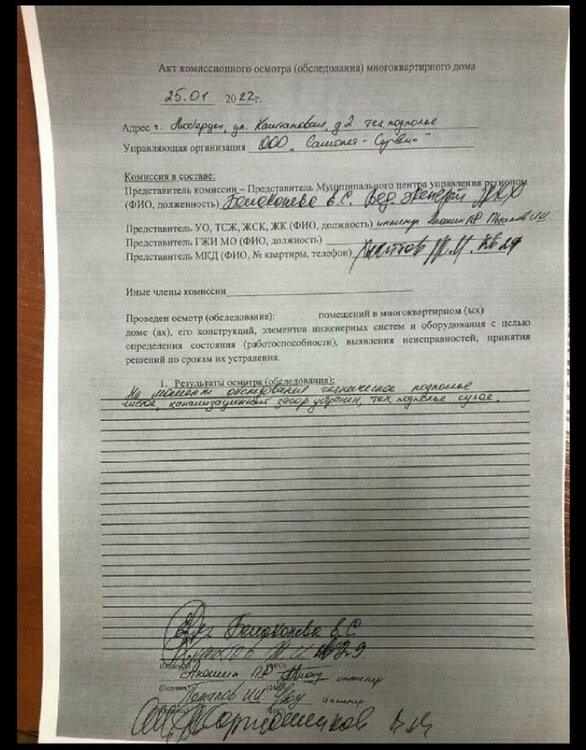 Акт комиссионного осмотра (обследования) многоквартирного дома
25.01 2022г.
Адрес г. Люберцы, ул. Каштановая, д 2 тех подполье
Управляющая организация ООО „Самолет-Сервис"
Комиссия в составе:
Представитель комиссии – Представитель Муниципального центра управления регионом
(ФИО, долженность) Е.С. Вед. эксперт
Представитель УО, ТСЖ, ЖСК, ЖК (ФИО, должность) инженер Потапов ИИ
Представитель ГЖИ МО (ФИО, должность)
Представитель МКД (ФИО, № квартиры, телефон)
Иные члены комиссии
Проведен осмотр (обследование): помещений в многоквартирном (ых)
доме (ах), его конструкций, элементов инженерных систем и оборудования с целью
определения состояния (работоспособности), выявления неисправностей, принятия
решений по срокам их устранения.
1. Результаты осмотра (обследования):
На момент обследования техническое подполье
чистое, канализационный засор устранен, тех. подполье сухое.
Е С
(Подпись) (ФИО)
инженер
(Подпись) Потапов ИИ инженер
(Подпись) (ФИО)